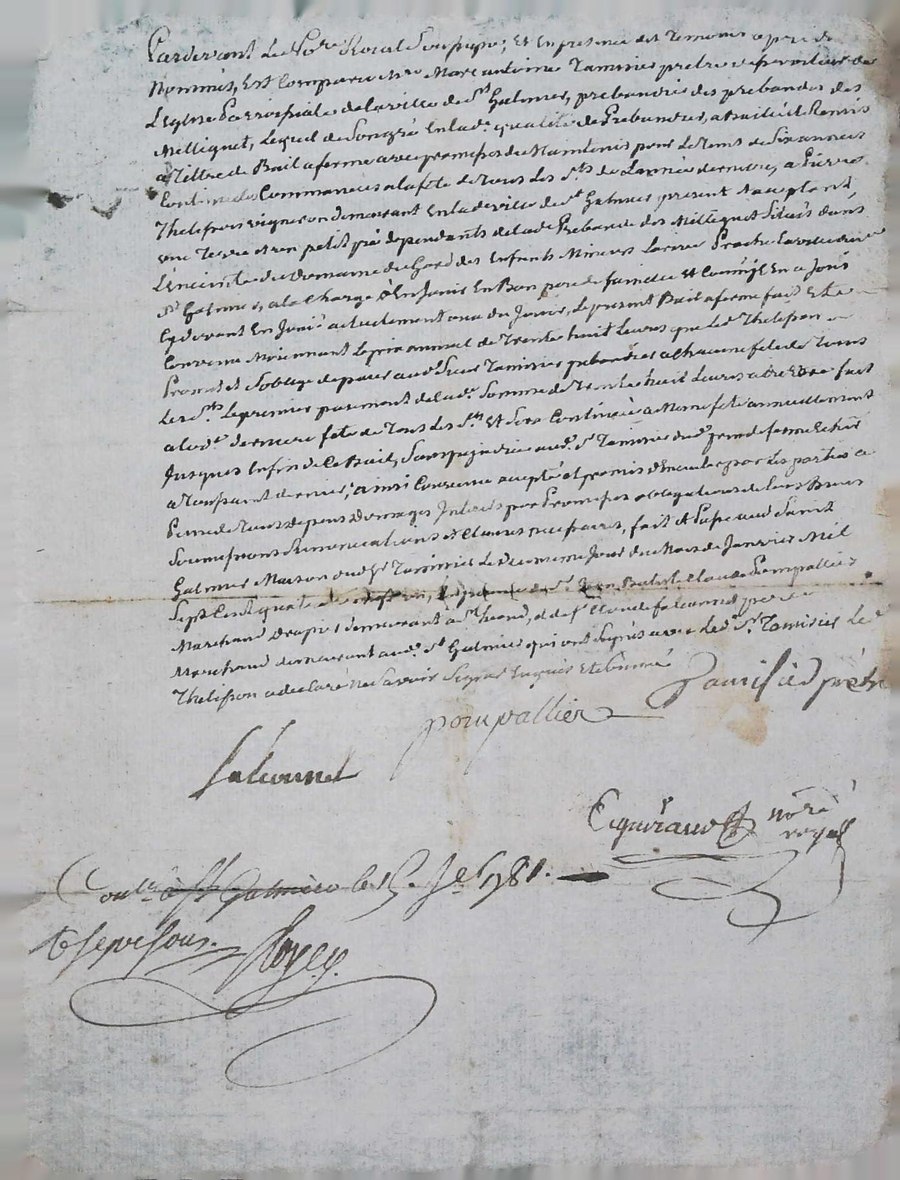 Pardevant Le No.re Roial Soussigné, et En presence des Temoins apres
Nommés, Est Comparu m.re Marc antoine Tamisier pretre
L'eglise Parroissiale de la ville de S.t Galmier, prebandier des prebandes des
Milliquet, Lequel de Son gré En lad.e qualité de Prebandier, a Baillé et Remis
a Tiltre de Bail a ferme avec promesse de Maintenir pour Le tems de Six années
Continues Commancés a la fete de Tous Les S.ts de L'année derniere, a Pierre
Thelisson vigneron demeurant En lad. ville de S.t Galmier present & acceptant,
une Terre et un petit pré dependants de lad. Prebande des Milliquet Situés dans
L'enceinte du Domaine du des Enfants Mineurs Proche la ville
S.t Galmier, a la Charge d'En Jouir En Bon pere de famille Et Comm'il En a Joui
Cydevant En Jouit actuellement ou a du Jouir, Le present Bail a ferme fait Et
Convenu Moiennant Le prix annuel de Trente huit Livres que Led. Thelisson
Promet et S'oblige de paier aud. Sieur Tamisier prebandier a Chacune fete de Tous
Les S.ts Le premier paiement de lad.e Somme de Trente huit Livres a été fait
a lad.e derniere fete de Tous Les S.ts Et Sera Continué a Meme fete annuellement
Jusques En fin de Ce Bail, aud. S.r Tamisier du prix de ferme Echu
a Toussaint dernier; ainsi Convenu accepté et promis d'Executer par Les parties a
Peine de Tous depens domages Interets par Promesses obligations de Leurs Biens
Soumissions Renonciations et Clauses necessaires, fait et Passé aud. Saint
Galmier Maison dud. S.r Tamisier Le Jour du Mois de Janvier Mil
Sept Cent quatre En presence de S.r Jean Batiste Claude Pompallier
Marchand Drapier demeurant a et de S.r Claude
Marchand demeurant aud. S.t Galmier qui ont Signés avec Led. S.r Tamisier Led.
Thelisson a declaré ne Savoir Signer Enquis Et
Tamisier prêtre
pompallier
no.re
royal
Con.lé à S.t Galmier le 15. J.er 1781.